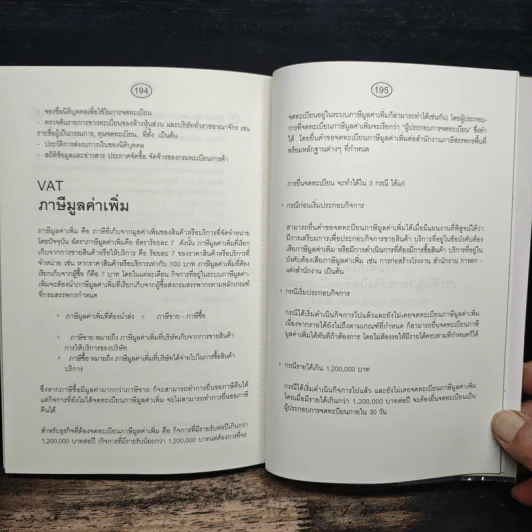 194
- จองชื่อนิติบุคคลเพื่อใช้ในการจดทะเบียน
- ตรวจค้นรายการทางทะเบียนของห้างหุ้นส่วน และบริษัททั่วราชอาณาจักร เช่น
รายชื่อผู้เป็นกรรมการ, ทุนจดทะเบียน, ที่ตั้ง เป็นต้น
- ประวัติการส่งงบการเงินของนิติบุคคล
- สถิติข้อมูลและข่าวสาร ประกาศจัดซื้อ จัดจ้างของกรมทะเบียนการค้า
VAT
ภาษีมูลค่าเพิ่ม
ภาษีมูลค่าเพิ่ม คือ ภาษีที่เก็บจากมูลค่าเพิ่มของสินค้าหรือบริการที่จัดจำหน่าย
โดยปัจจุบัน อัตราภาษีมูลค่าเพิ่มคือ อัตราร้อยละ 7 ดังนั้น ภาษีมูลค่าเพิ่มที่เรียก
เก็บจากการขายสินค้าหรือให้บริการ คือ ร้อยละ 7 ของราคาสินค้าหรือบริการที่
จำหน่าย เช่น หากราคาสินค้าหรือบริการเท่ากับ 100 บาท ภาษีมูลค่าเพิ่มที่ต้อง
เรียกเก็บจากผู้ซื้อ ก็คือ 7 บาท โดยในแต่ละเดือน กิจการที่อยู่ในระบบภาษีมูลค่า-
เพิ่มจะต้องนำภาษีมูลค่าเพิ่มที่เรียกเก็บจากผู้ซื้อส่งกรมสรรพากรตามหลักเกณฑ์
ที่กรมสรรพากรกำหนด
ภาษีมูลค่าเพิ่มที่ต้องนำส่ง = ภาษีขาย - ภาษีซื้อ
ภาษีขาย หมายถึง ภาษีมูลค่าเพิ่มที่บริษัทเก็บจากการขายสินค้า
การให้บริการของบริษัท
ภาษีซื้อ หมายถึง ภาษีมูลค่าเพิ่มที่บริษัทได้จ่ายไปในการซื้อสินค้า
บริการ
ซึ่งหากภาษีซื้อมีมูลค่ามากกว่าภาษีขาย ก็จะสามารถทำการยื่นขอภาษีคืนได้
แต่กิจการที่ยังไม่ได้จดทะเบียนภาษีมูลค่าเพิ่ม จะไม่สามารถทำการยื่นขอภาษี
คืนได้
สำหรับธุรกิจที่ต้องจดทะเบียนภาษีมูลค่าเพิ่ม คือ กิจการที่มีรายรับต่อปีเกินกว่า
1,200,000 บาทต่อปี (กิจการที่มีรายรับน้อยกว่า 1,200,000 บาทแต่ต้องการที่จะ
195
จดทะเบียนอยู่ในระบบภาษีมูลค่าเพิ่มก็สามารถทำได้เช่นกัน) โดยผู้ประกอบ-
การที่จดทะเบียนภาษีมูลค่าเพิ่มจะเรียกว่า "ผู้ประกอบการจดทะเบียน" ซึ่งทำ
ได้ โดยยื่นคำขอจดทะเบียนภาษีมูลค่าเพิ่มต่อสำนักงานภาษีสรรพากรพื้นที่
พร้อมหลักฐานต่างๆ ที่กำหนด
การยื่นจดทะเบียน จะทำได้ใน 3 กรณี ได้แก่
กรณีก่อนเริ่มประกอบกิจการ
สามารถยื่นคำขอจดทะเบียนภาษีมูลค่าเพิ่มได้เมื่อมีแผนงานที่พิสูจน์ได้ว่า
มีการเตรียมการเพื่อประกอบกิจการขายสินค้า บริการที่อยู่ในข้อบังคับต้อง
เสียภาษีมูลค่าเพิ่ม หรือมีการดำเนินการที่ต้องมีการซื้อสินค้า บริการที่อยู่ใน
บังคับต้องเสียภาษีมูลค่าเพิ่ม เช่น การก่อสร้างโรงงาน สำนักงาน การตก -
แต่งสำนักงาน เป็นต้น
กรณีเริ่มประกอบกิจการ
กรณีได้เริ่มดำเนินกิจการไปแล้วและยังไม่เคยจดทะเบียนภาษีมูลค่าเพิ่ม
เนื่องจากรายได้ยังไม่ถึงตามเกณฑ์ที่กำหนด ก็สามารถยื่นจดทะเบียนภาษี
มูลค่าเพิ่มได้ทันทีถ้าต้องการ โดยไม่ต้องรอให้มีรายได้ครบตามที่กำหนดก็ได้
กรณีรายได้เกิน 1,200,000 บาท
กรณีได้เริ่มดำเนินกิจการไปแล้ว และยังไม่เคยจดทะเบียนภาษีมูลค่าเพิ่ม
โดยเมื่อมีรายได้เกินกว่า 1,200,000 บาทต่อปี จะต้องยื่นจดทะเบียนเป็น
ผู้ประกอบการจดทะเบียนภายใน 30 วัน